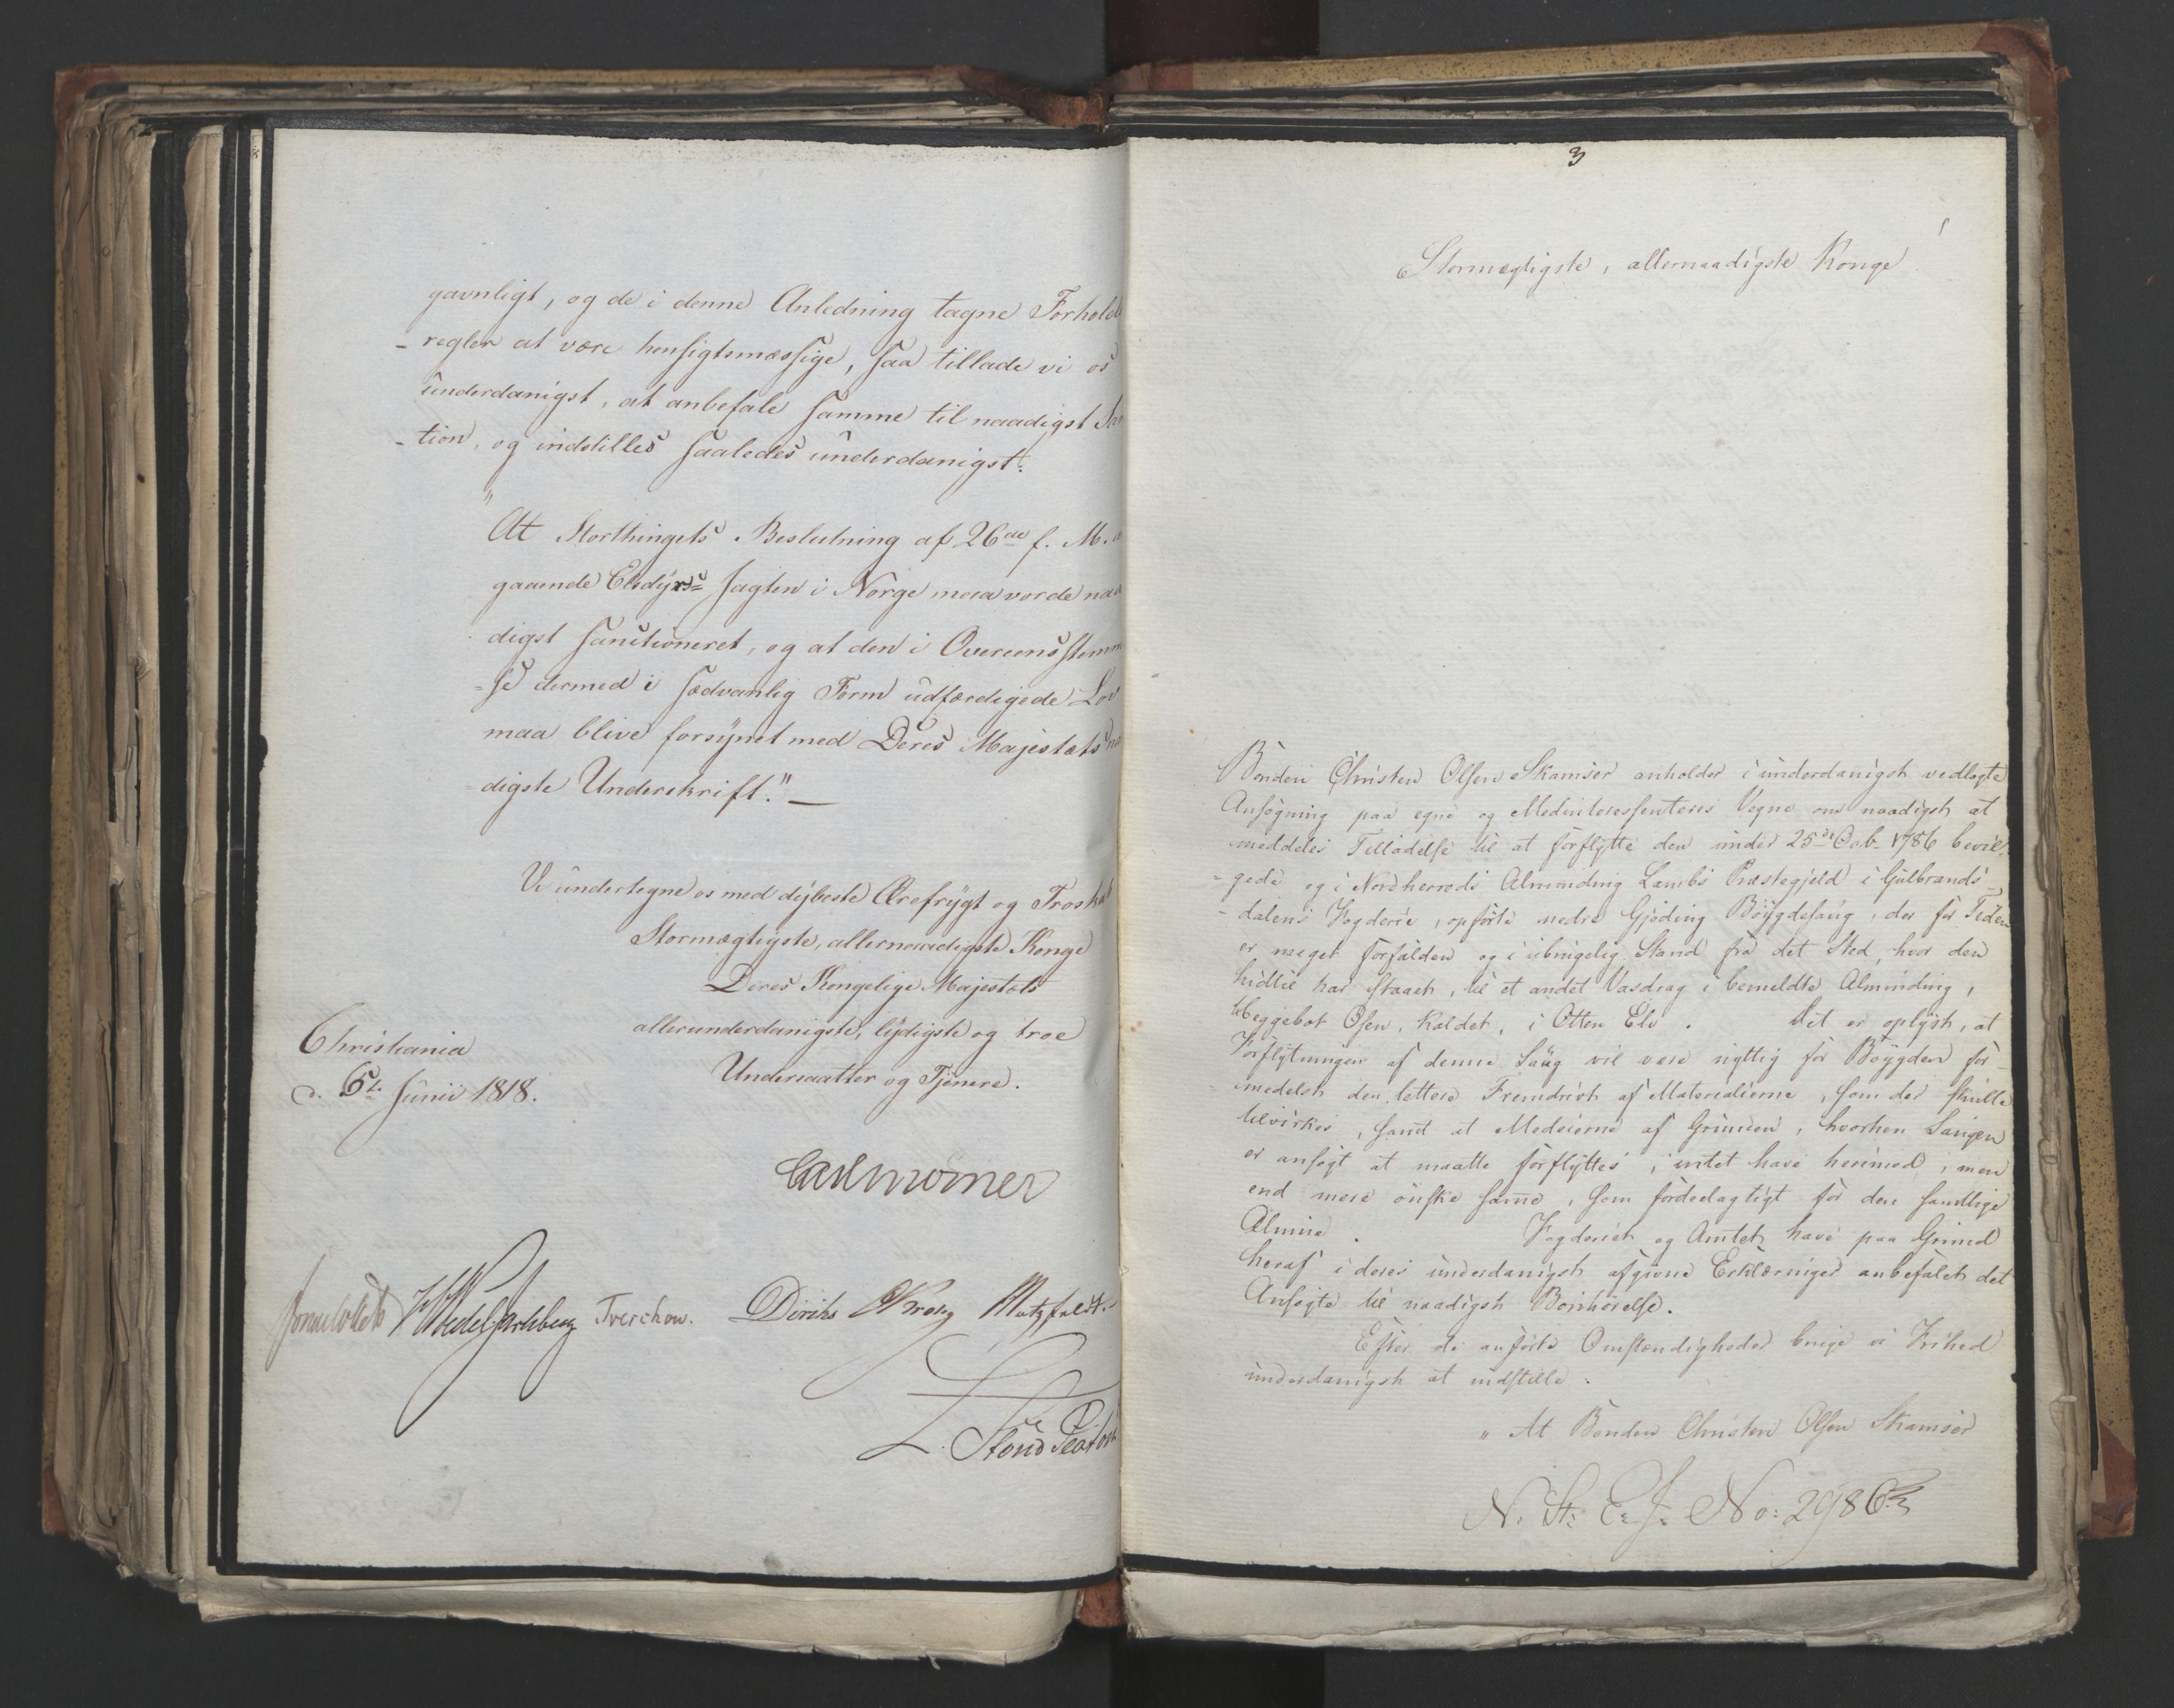 gavnligt, og de i denne Anledning tagne Forholds
- regler at være hensigtsmæssige, saa tillade vi os
underdanigst, at anbefale samme til naadigst San
- tion, og indstilles saaledes underdanigst:
"
At Storthingets Beslutning af 26de f. M. a
gaaende Elsdyrs- Jagten i Norge maa vorde naa
digst sanctioneret, og at den i Overeensstemm
- se dermed i sædvanlig Form udfærdigede Lov
maa blive forsynet med Deres Majestæts na
- digste Underskrift." —
Vi undertegne os med dybeste Ærefrygt og Troskab
Stormægtigste, allernaadigste Konge
Deres Kongelige Majestæts
allerunderdanigste, lydigste og troe
Undersaatter og Tjenere.
Christiania
d. 6te Junii 1818.
Carl Mörner
Sommerfeldt HWedelJarlsberg Treschow. Diriks CKrog Motzfeldt.
L. Stoud Platou
3
Stormægtigste, allernaadigste Konge!
Bonden Christen Olsen Skamsær anholder i underdanigst vedlagte
Ansøgning paa egne og Medinteressenteres Vegne om naadigst at
meddeles Tilladelse til at forflytte den under 25de Octb. 1786 bevil-
- gede og i Nordherreds Alminding Lambs Præstegjeld i Gulbrands-
- dalens Fogderie, opførte nedre Gjøding Bøygdesaug, der for Tiden
er meget forfalden og i ubrugelig Stand fra det Sted, hvor den
hidtil har staaet, til et andet Vasdrag i bemeldte Alminding,
Heggebot Osen, kaldet, i Otten Elv. Det er oplyst, at
Forflytningen af denne Saug vil være nyttig for Bøygden for-
- medelst den lettere Fremdrivt af Materialierne, som der skulle
tilvirkes, samt at Medeierne af Grunden, hvorhen Saugen
er ansøgt at maatte forflyttes, intet have herimod, men
end mere ønske samme, som fordeelagtigt for den samtlige
Almue. Fogderiet og Amtet have paa Grund
heraf i deres underdanigst afgivne Erklæringer anbefalet det
Ansøgte til naadigst Bønhørelse.
Efter de anførte Omstændigheder bruge vi Frihed
underdanigst at indstille:
" At Bonden Christen Olsen Skamsær
N. St: E: J: No: 2986